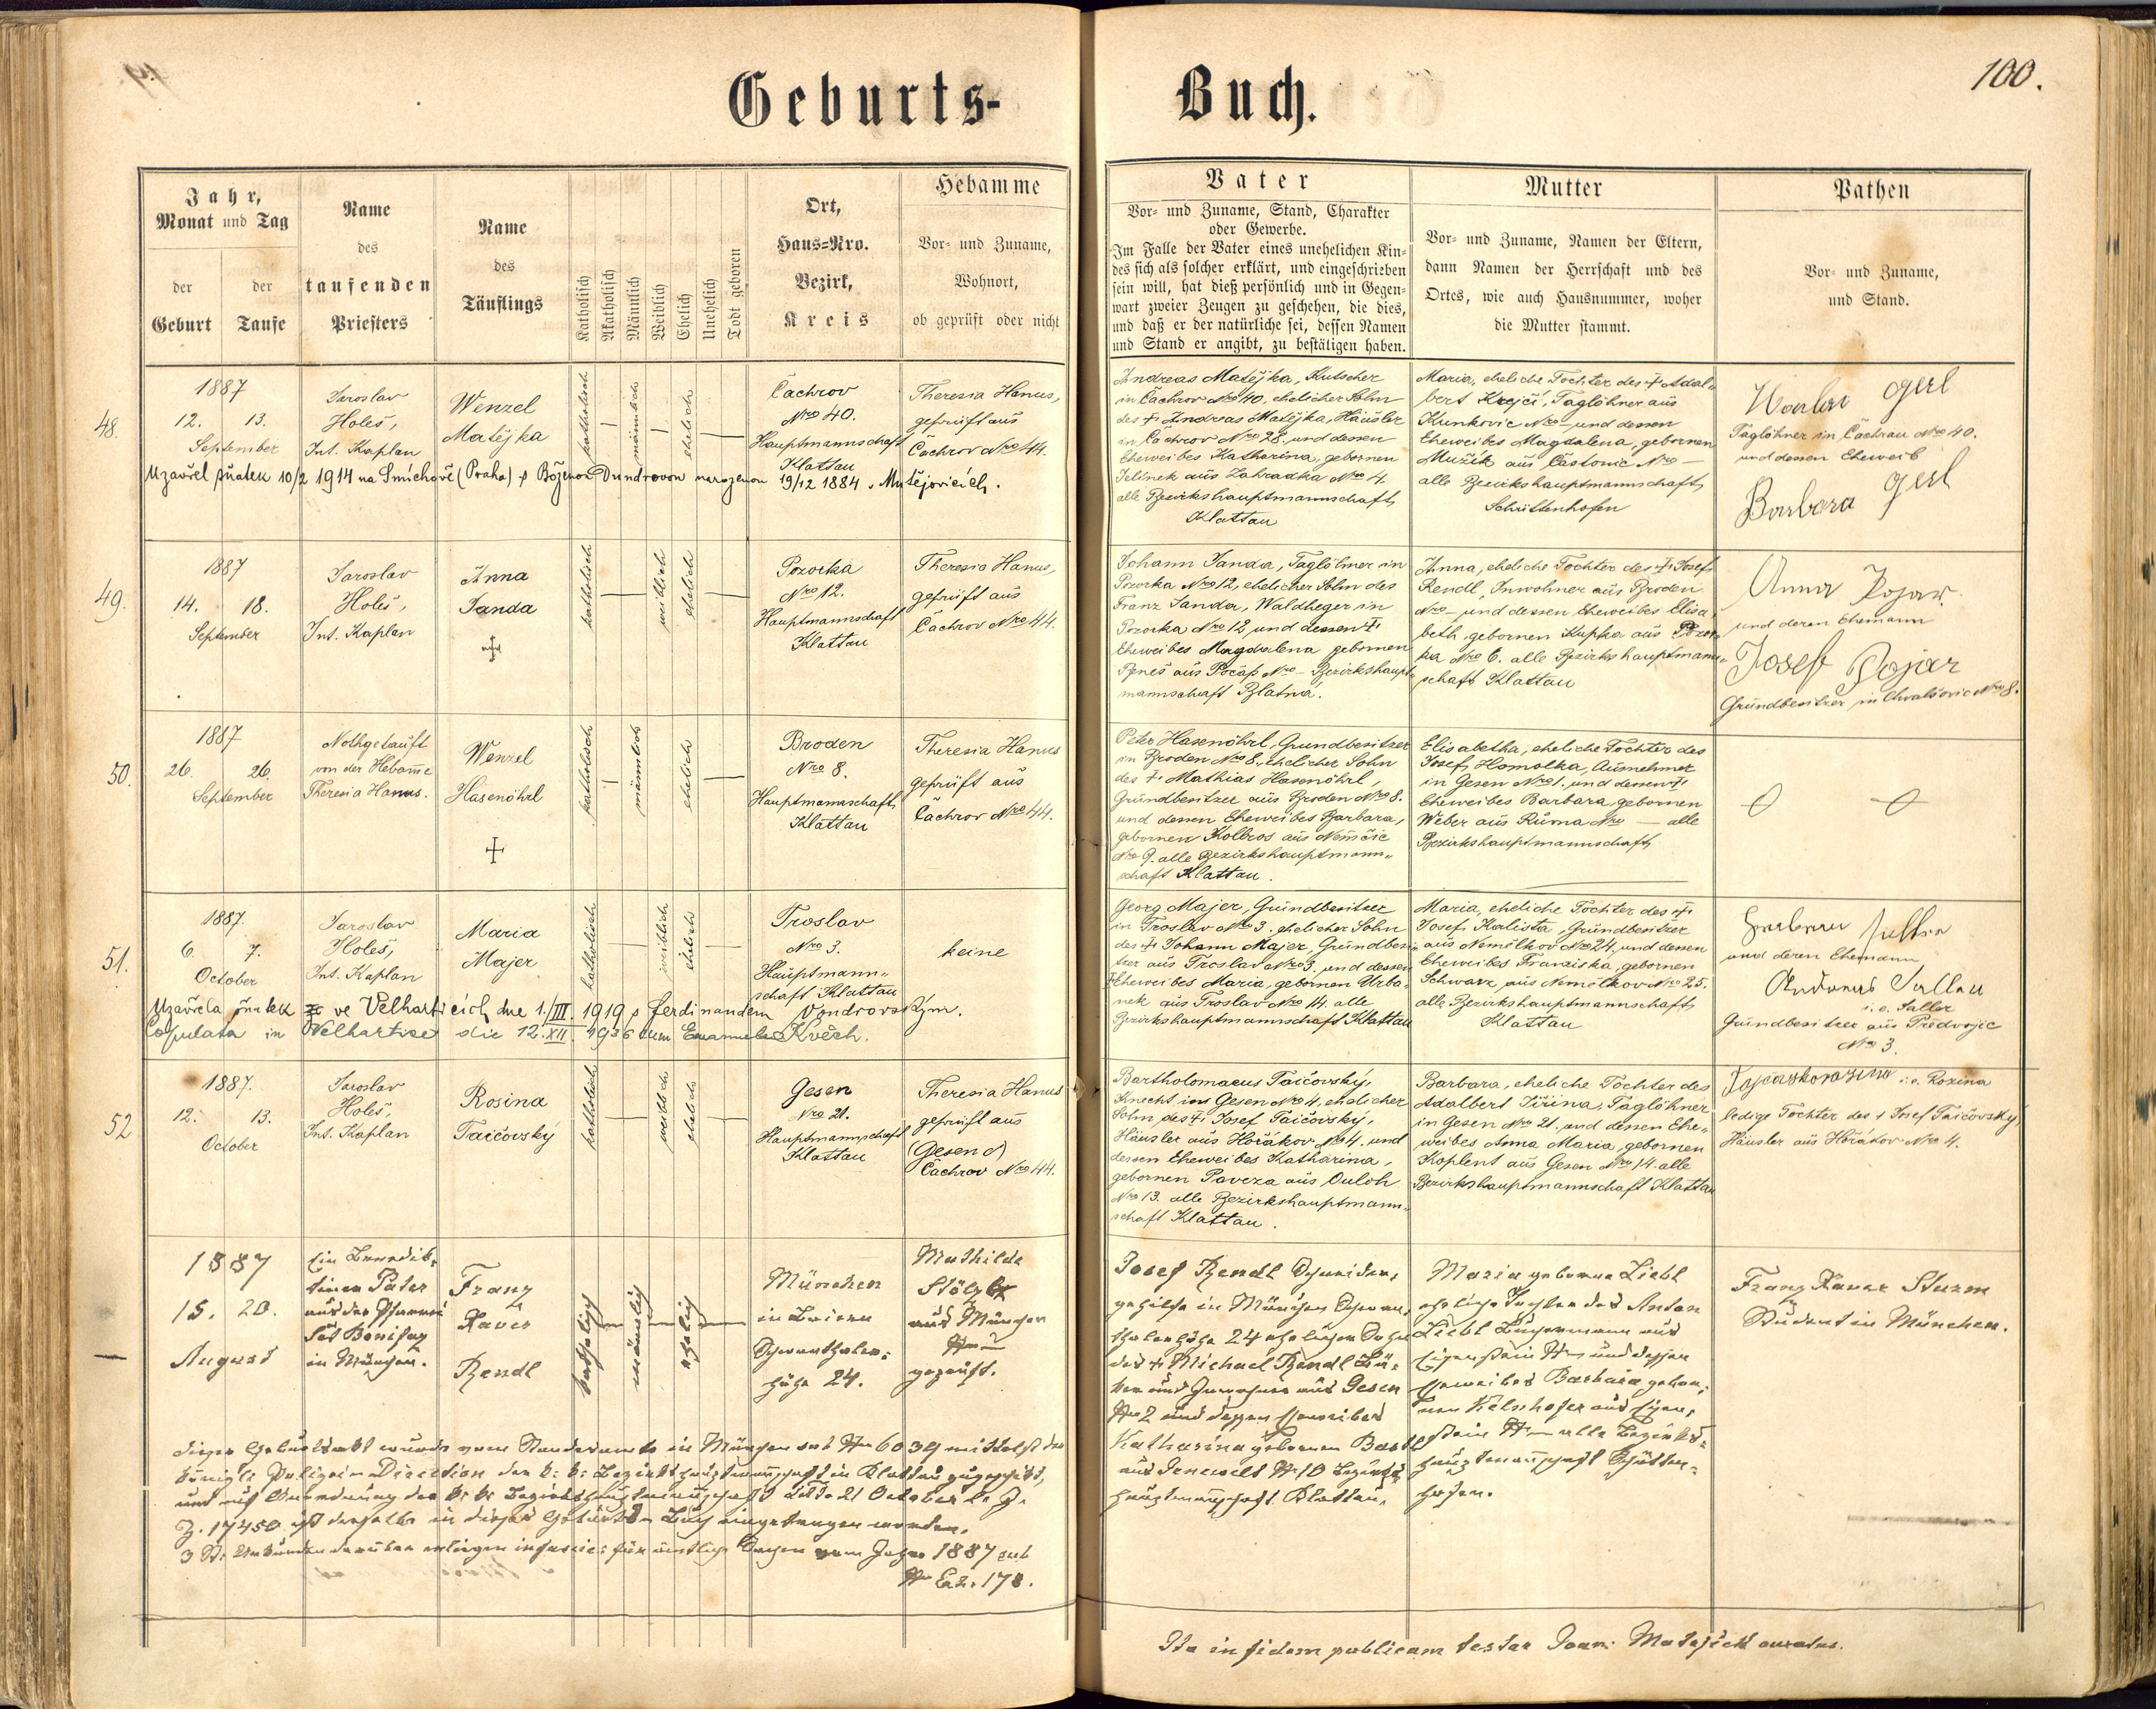 100.
Geburts- Buch.
Jahr,
Monat und Tag
der
Geburt
der
Taufe
Name
des
taufenden
Priesters
Name
des
Täuflings
Katholisch
Akatholisch
Männlich
Weiblich
Ehelich
Unehelich
Todt geboren
Ort,
Haus=Nro.
Bezirk,
Kreis
Hebamme
Vor- und Zuname,
Wohnort,
ob geprüft oder nicht
Vater
Vor- und Zuname, Stand, Charakter
oder Gewerbe.
Im Falle der Vater eines unehelichen Kin-
des sich als solcher erklärt, und eingeschrieben
sein will, hat dieß persönlich und in Gegen-
wart zweier Zeugen zu geschehen, die dies,
und daß er der natürliche sei, dessen Namen
und Stand er angibt, zu bestätigen haben.
Mutter
Vor- und Zuname, Namen der Eltern,
dann Namen der Herrschaft und des
Ortes, wie auch Hausnummer, woher
die Mutter stammt.
Pathen
Vor- und Zuname,
und Stand.
48.
1887
12. 13.
September
Jaroslav
Holeš,
Int. Kaplan
Wenzel
Matějka
katholisch
männlich
ehelich
Čachrov
Nro 40.
Hauptmannschaft
Klattau
Theresia Hanus,
geprüft aus
Čachrov Nro 44.
Uzavřel sňatek 10/2 1914 na Smíchově (Praha) s Boženou Dundrovou narozenou 19/12 1884 v Mutějovicích.
Andreas Matějka, Kutscher
in Čachrov Nro 40, ehelicher Sohn
des † Andreas Matějka, Häusler
in Čachrov Nro 28, und dessen
Eheweibes Katharina, gebornen
Jelínek aus Zahradka Nro 4.
alle Bezirkshauptmannschaft
Klattau
Maria, eheliche Tochter des † Adal-
bert Krejčí, Taglöhner aus
Kunkovic Nro — und dessen
Eheweibes Magdalena, gebornen
Mužík aus Častonic Nro —
alle Bezirkshauptmannschaft
Schüttenhofen
Gerl
Taglöhner in Čachrau Nro 40.
und dessen Eheweib
Barbara Gerl
49.
1887
14. 18.
September
Jaroslav
Holeš,
Int. Kaplan
Anna
Janda
katholisch
weiblich
ehelich
Pozorka
Nro 12.
Hauptmannschaft
Klattau
Theresia Hanus,
geprüft aus
Čachrov Nro 44.
Johann Janda, Taglöhner in
Pozorka Nro 12, ehelicher Sohn des
Franz Janda, Waldheger in
Pozorka Nro 12 und dessen †
Eheweibes Magdalena gebornen
aus Nro — Bezirkshaupt-
mannschaft Blatná.
Anna, eheliche Tochter des † Josef
Rendl, Inwohner aus Broden
Nro — und dessen Eheweibes Elisa-
beth, gebornen Kupka aus Pozor-
ka Nro 6. alle Bezirkshauptmann-
schaft Klattau
Anna Pojar
und deren Ehemann
Josef Pojar
Grundbesitzer in Chvalšovic Nro 8.
50.
1887
26. 26.
September
Nothgetauft
von der Hebamme
Theresia Hanus.
Wenzel
Hasenöhrl
katholisch
männlich
ehelich
Broden
Nro 8.
Hauptmannschaft
Klattau
Theresia Hanus
geprüft aus
Čachrov Nro 44.
Peter Hasenöhrl, Grundbesitzer
in Broden Nro 8, ehelicher Sohn
des † Mathias Hasenöhrl,
Grundbesitzer aus Broden Nro 8.
und dessen Eheweibes Barbara,
gebornen Kolbros aus Němčic
Nro 9. alle Bezirkshauptmann-
schaft Klattau.
Elisabetha, eheliche Tochter des
Josef Homolka, Ausnehmer
in Gesen Nro 1. und dessen †
Eheweibes Barbara, gebornen
Weber aus Ruma Nro — alle
Bezirkshauptmannschaft
51.
1887.
6. 7.
October
Jaroslav
Holeš,
Int. Kaplan
Maria
Majer
katholisch
weiblich
ehelich
Troslav
Nro 3.
Hauptmann-
schaft Klattau
keine
Uzavřela sňatek ve Velharticích dne 1./III. 1919 s Ferdinandem Vondrovským.
Copulata in Velhartice die 12.XII. 1936 cum Emanuele Květh.
Georg Majer, Grundbesitzer
in Troslav Nro 3. ehelicher Sohn
des † Johann Majer, Grundbesi-
tzer aus Troslav Nro 3. und dessen
† Eheweibes Maria, gebornen Urba-
nek aus Troslav Nro 14. alle
Bezirkshauptmannschaft Klattau
Maria, eheliche Tochter des †
Josef Kalista, Grundbesitzer
aus Nemilkov Nro 24, und dessen
Eheweibes Franziska, gebornen
Schwarz, aus Nemilkov Nro 25.
alle Bezirkshauptmannschaft
Klattau
und deren Ehemann
Andreas
i. e. Saller
Grundbesitzer aus Předvojic
Nro 3.
52
1887.
12. 13.
October
Jaroslav
Holeš,
Int. Kaplan
Rosina
Taičovský
katholisch
weiblich
ehelich
Gesen
Nro 21.
Hauptmannschaft
Klattau
Theresia Hanus
geprüft aus
(Gesen)
Čachrov Nro 44.
Bartholomaeus Taičovský,
Knecht in Gesen Nro 4, ehelicher
Sohn des † Josef Taičovský,
Häusler aus Horákov Nro 4. und
dessen Eheweibes Katharina,
gebornen Paveza aus Ouloh
Nro 13. alle Bezirkshauptmann-
schaft Klattau.
Barbara, eheliche Tochter des
Adalbert Jiřina, Taglöhner
in Gesen Nro 21. und dessen Ehe-
weibes Anna Maria, gebornen
Koplent aus Gesen Nro 14. alle
Bezirkshauptmannschaft Klattau
i. e. Rosina
ledige Tochter des † Josef Taičovský,
Häusler aus Horákov Nro 4.
—
1887
15. 20.
August
Ein Benedik-
tiner Pater
aus der Pfarrei
Set Bonifaz
in München.
Franz
Xaver
Rendl
katholisch
männlich
ehelich
München
in Baiern
Schwanthaler-
höhe 24.
Mathilde
Stölzl
aus München
geprüft.
Josef Rendl Schneider-
gehilfe in München Schwan-
thalerhöhe 24 ehelicher Sohn
des † Michael Rendl
und Inwohners aus Gesen
Nro 2 und dessen Eheweibes
Katharina gebornen
aus Nr 10 Bezirks-
hauptmannschaft Klattau.
Maria geborene Liebl
eheliche Tochter des Anton
Liebl aus
Eisenstein Nr — und dessen
Eheweibes Barbara gebor-
nen aus Eisen-
stein Nr — alle Bezirks-
hauptmannschaft Schütten-
hofen.
Franz Xaver Sturm
Student in München.
Dieser Geburtsakt wurde vom Standesamte in München sub Nro 6039 mittelst der
königl. Polizei-Direction der k. k. Bezirkshauptmannschaft in Klattau zugeschickt,
und auf Anordnung der k. k. Bezirkshauptmannschaft ddto 21 October l. J.
Z. 17450 ist derselbe in dieses Geburts-Buch eingetragen worden.
3 St. Urkunden darüber erliegen im für amtliche vom Jahre 1887 sub
Nro Exh. 178.
Ita in fidem publicam testor Joan: Matejiček curatus.